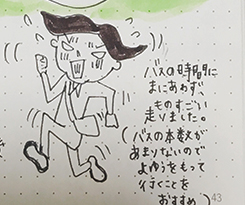 バスの時間に
まにあわず
ものすごい
走りました。
(バスの本数が
あまりないので
よゆうをもって
行くことを
おすすめ)
43